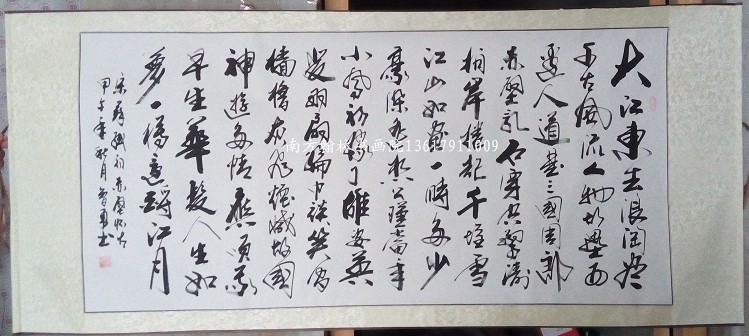 大江東去浪淘盡
千古風流人物故壘西
邊人道是三國周郎
赤壁亂石穿空驚濤
拍岸捲起千堆雪
江山如畫一時多少
豪傑遥想公瑾當年
小喬初嫁了雄姿英
發羽扇綸巾談笑間
檣櫓灰飛煙滅故國
神遊多情應笑我
早生華髮人生如
夢一樽還酹江月
宋蘇軾詞赤壁懷古
甲午年秋月 書
南方翰林书画院13617911009